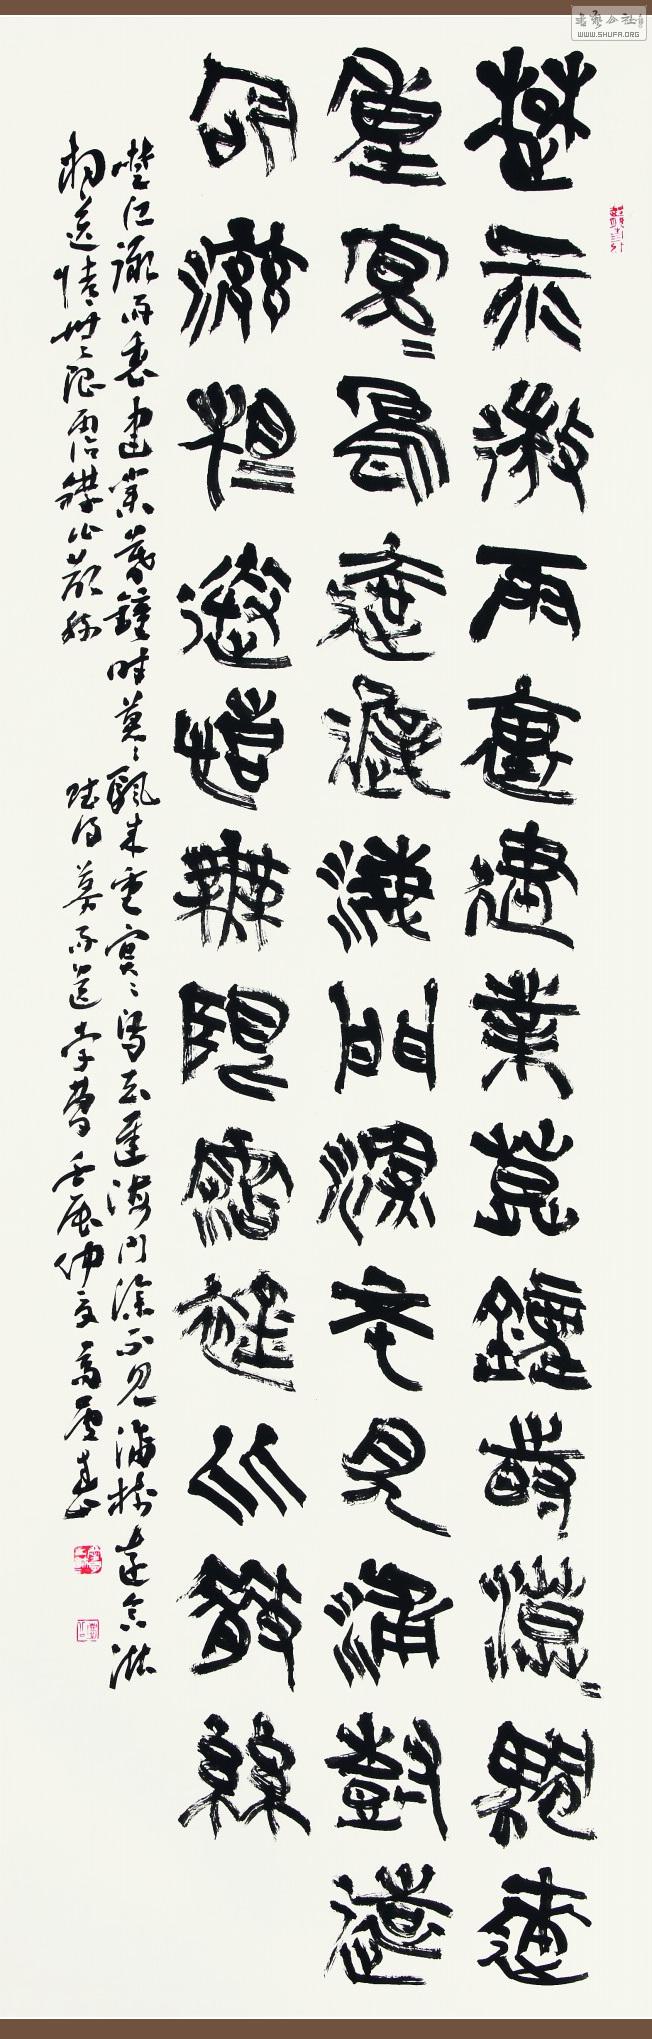 書藝公社
WWW.SHUFA.ORG
楚江微雨裏建業莫鐘時漠〻颿來
重冥〻鳥去遲海門深不見浦樹遠
含滋相送情無限沾襟比散絲
楚江微雨裏建業莫鐘時莫〻颿來重冥〻鳥去遲海門深不見浦樹遠含滋
相送情無限沾襟比散絲 賦得莫雨送李曹 壬辰仲夏高慶春